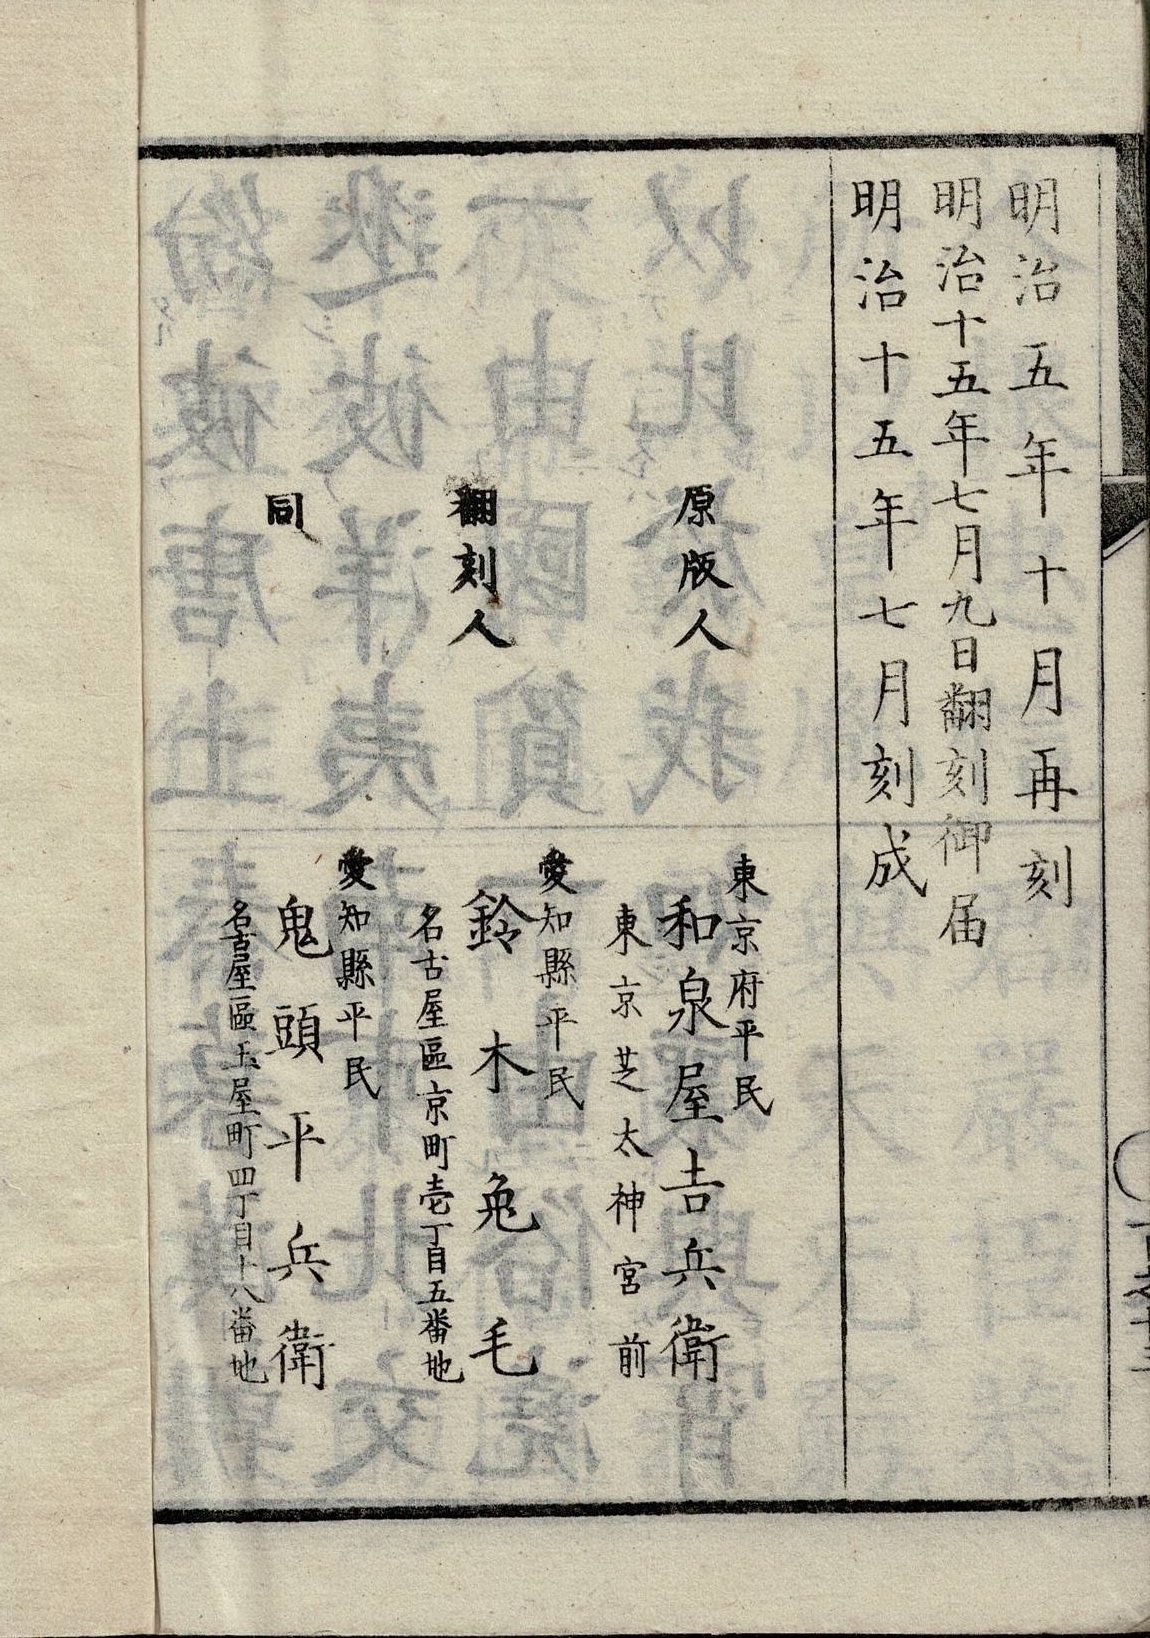 明治五年十月再刻
明治十五年七月九日翻刻御届
明治十五年七月刻成
原版人
東京府平民
和泉屋吉兵衛
東京芝太神宮前
翻刻人
愛知縣平民
鈴木兎毛
名古屋區京町壱丁目五番地
同
愛知縣平民
鬼頭平兵衛
名古屋區玉屋町四丁目十八番地